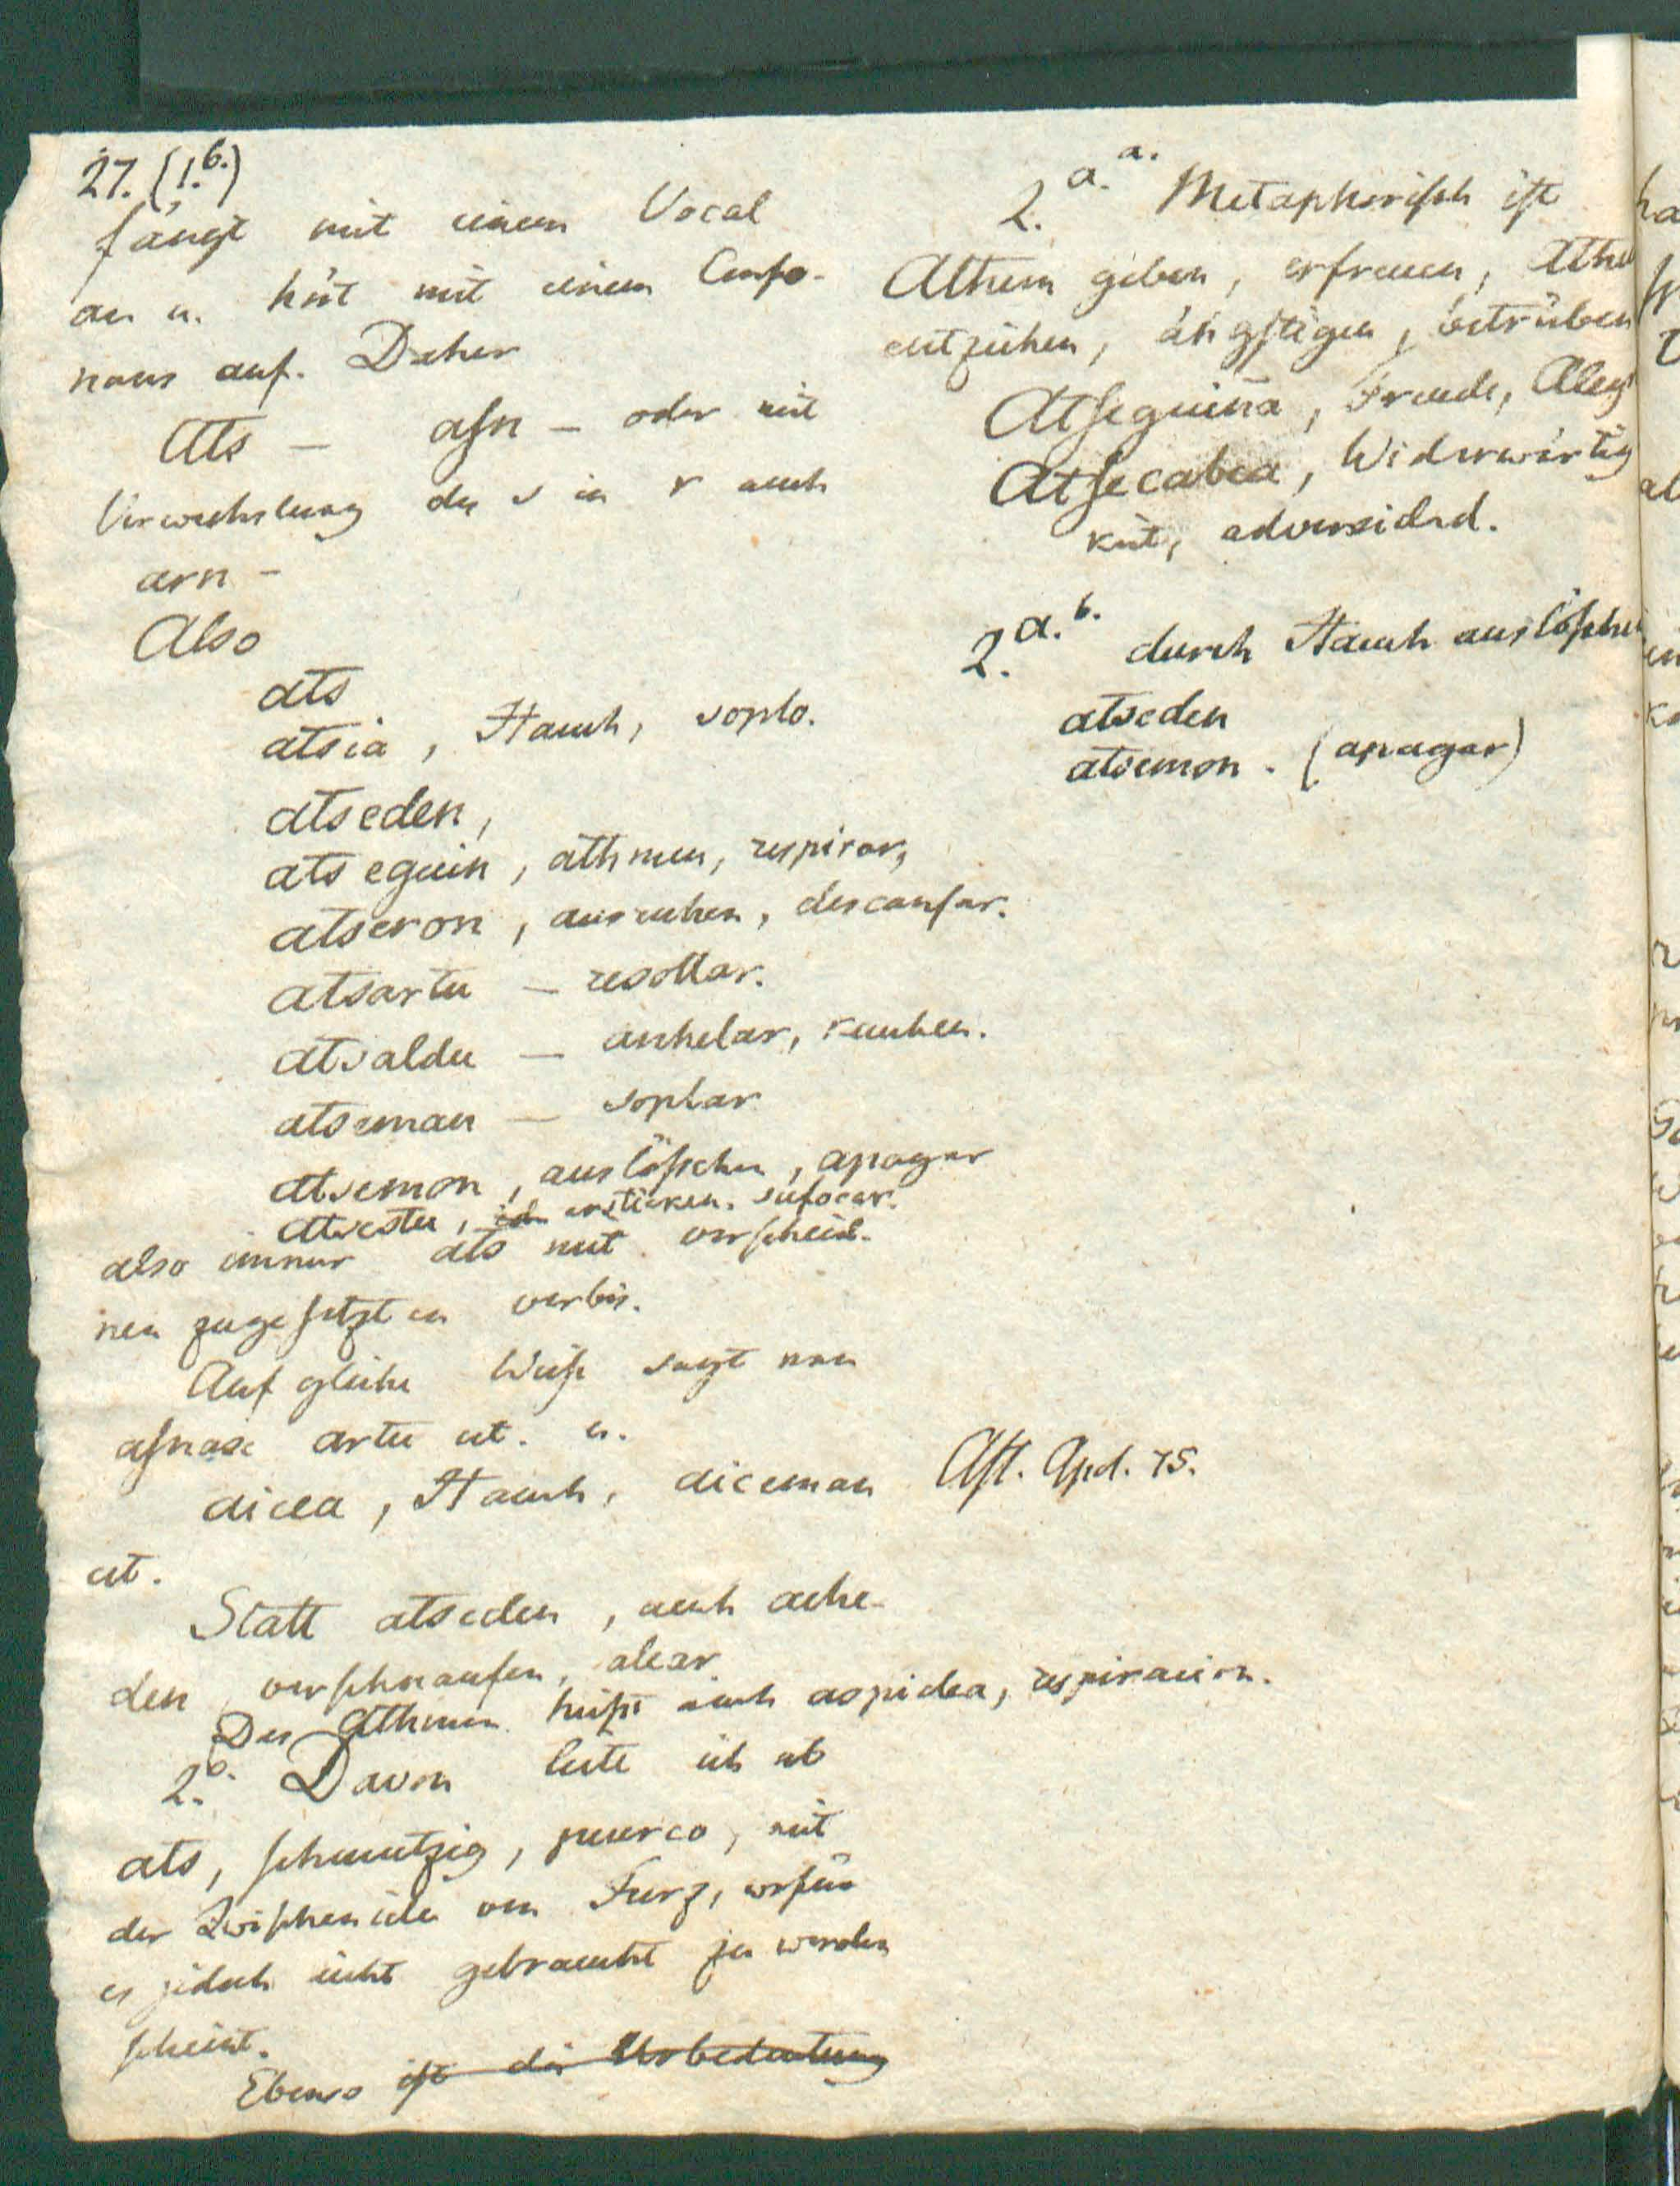 27. (1.b.)
fängt mit einem Vocal
an u. hört mit einem Conso-
nans auf. Daher
Ats – asn – oder mit
Verwechslung des s in r auch
arn –
Also
ats
atsia, Hauch, soplo.
atseden,
atseguin, athmen, respirar,
atseron, ausruhen, descansar.
atsartu – resollar.
atsaldu – anhelar, keuchen.
atseman – soplar
atsemon, auslöschen, apagar
atsestu, ersticken, sufocar.
also immer ats mit verschied-
nen zugesetzten verbis.
Auf gleiche Weise sagt man
asnase artu et. u.
aicea, Hauch, aiceman
et.
Statt atseden, auch ache-
den verschnaufen, alear.
Das Athmen heißt auch aspidea, respiracion.
2.b. Davon leite ich ab
ats, schmutzig, puerco, mit
der Zwischenidee von Furz, wofür
es jedoch nicht gebraucht zu werden
scheint.
Ebenso ist die Urbedeutung
2.a.a. Metaphorisch ist
Athem geben, erfreuen, Athe
entziehen, ängstigen, betrüben
Atseguiña, Freude, Aleg
Atsecabea, Widerwärtig
keit, adversidad.
2.a.b. durch Hauch auslöschen
atseden
atsemon. (apagar)
Ast. Apol. 75.